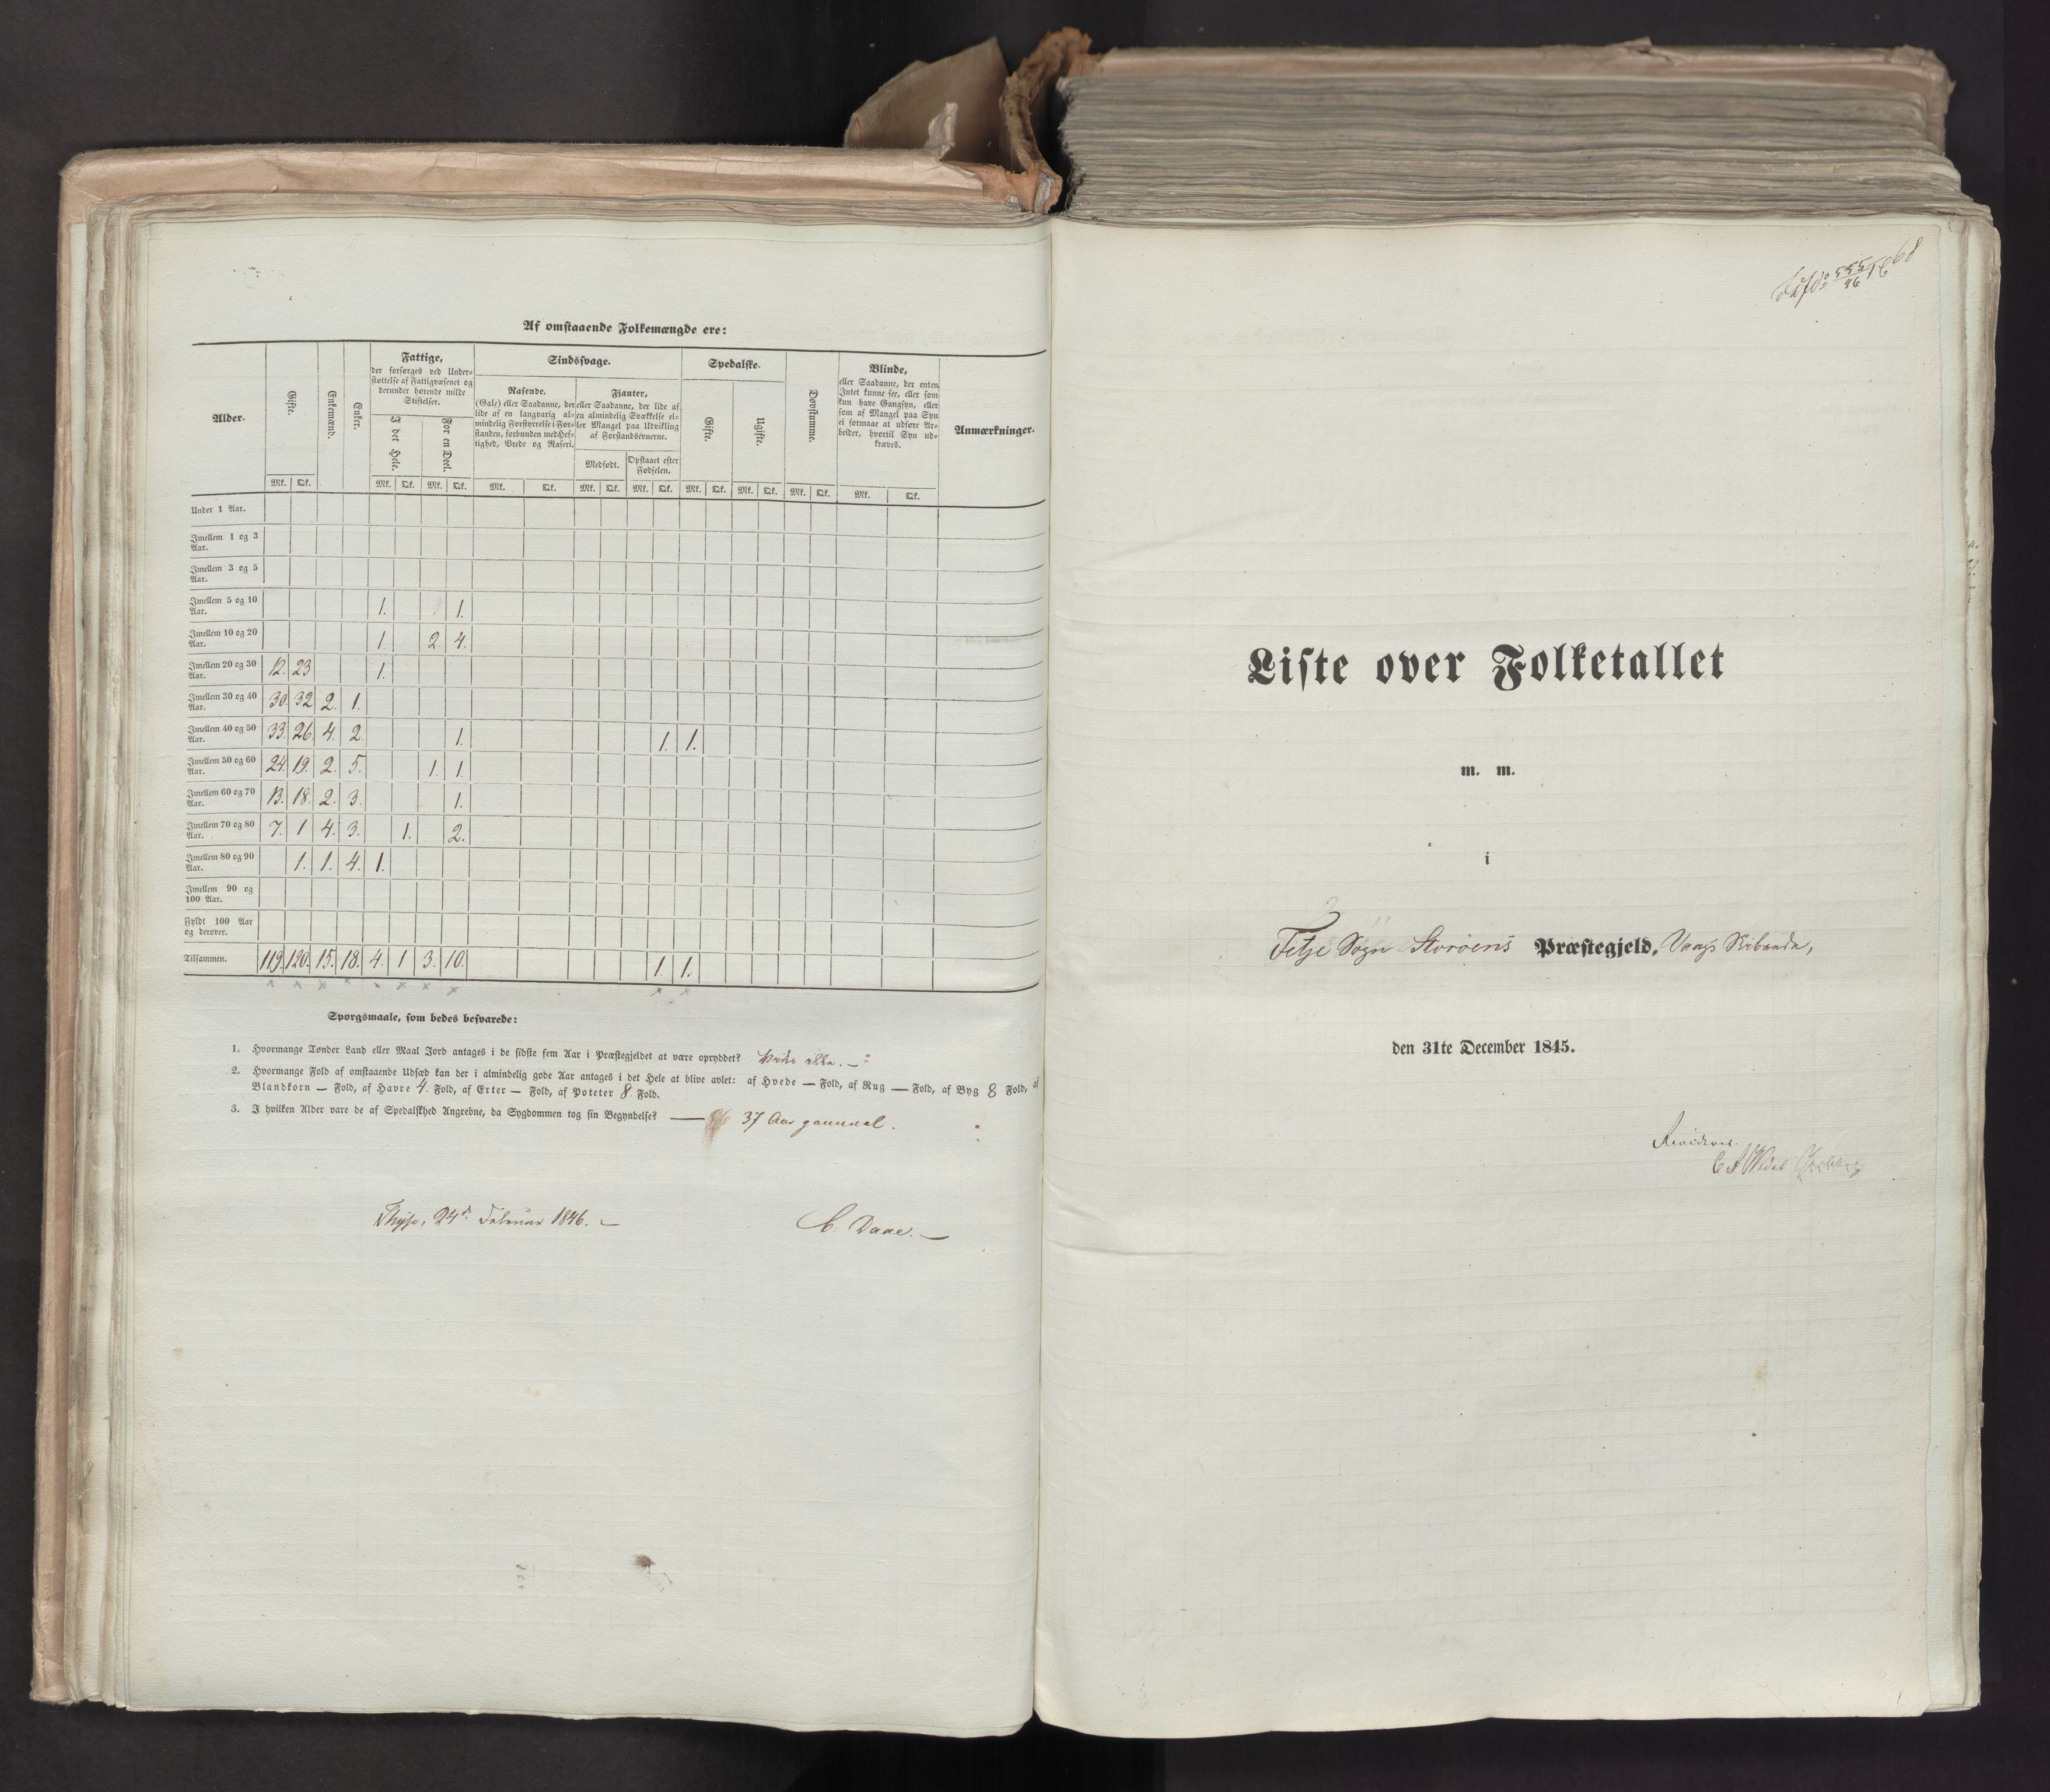 Af omstaaende Folkemængde ere:
Alder.
Gifte.
Enkemænd.
Enker.
Fattige,
der forsørges ved Under-
støttelse af Fattigvæsenet og
derunder hørende milde
Stiftelser.
I det Hele.
For en Deel.
Sindssvage.
Rasende.
(Gale) eller Saadanne, der
lide af en langvarig al-
mindelig Forstyrrelse i For-
standen, forbunden med Hef-
tighed, Vrede og Raseri.
Fjanter,
eller Saadanne, der lide af
en almindelig Svækkelse el-
ler Mangel paa Udvikling
af Forstandsevnerne.
Medfødt.
Opstaaet efter
Fødselen.
Spedalske.
Gifte.
Ugifte.
Døvstumme.
Blinde,
eller Saadanne, der enten
Intet kunne see, eller som
kun have Gangsyn, eller
som af Mangel paa Syn
ei formaae at udføre Ar-
beider, hvortil Syn ud-
kræves.
Anmærkninger.
Mk. Qk. Mk. Qk. Mk. Qk. Mk. Qk. Mk. Qk. Mk. Qk. Mk. Qk. Mk. Qk. Mk. Qk. Mk. Qk.
Under 1 Aar.
Imellem 1 og 3
Aar.
Imellem 3 og 5
Aar.
Imellem 5 og 10
Aar. 1. 1.
Imellem 10 og 20
Aar. 1. 2. 4.
Imellem 20 og 30
Aar. 12. 23 1.
Imellem 30 og 40
Aar. 30. 32 2. 1.
Imellem 40 og 50
Aar. 33. 26. 4. 2. 1. 1. 1.
Imellem 50 og 60
Aar. 24. 19. 2. 5. 1. 1.
Imellem 60 og 70
Aar. 13. 18. 2. 3. 1.
Imellem 70 og 80
Aar. 7. 1 4. 3. 1. 2.
Imellem 80 og 90
Aar. 1. 1. 4. 1.
Imellem 90 og
100 Aar.
Fyldt 100 Aar
og derover.
Tilsammen. 119. 120. 15. 18. 4. 1 3. 10. 1. 1.
Spørgsmaale, som bedes besvarede:
1. Hvormange Tønder Land eller Maal Jord antages i de sidste fem Aar i Præstegjeldet at være opryddet?
2. Hvormange Fold af omstaaende Udsæd kan der i almindelig gode Aar antages i det Hele at blive avlet: af Hvede — Fold, af Rug — Fold, af Byg 8 Fold, af
Blandkorn — Fold, af Havre 4. Fold, af Erter — Fold, af Poteter 8. Fold.
3. I hvilken Alder vare de af Spedalskhed Angrebne, da Sygdommen tog sin Begyndelse? — 37 Aar gammel.
24de Februar 1846. —
C. Daae. —
555/46
Liste over Folketallet
m. m.
i
Fitje Sogn Storøens Præstegjeld,
den 31te December 1845.
Revideret